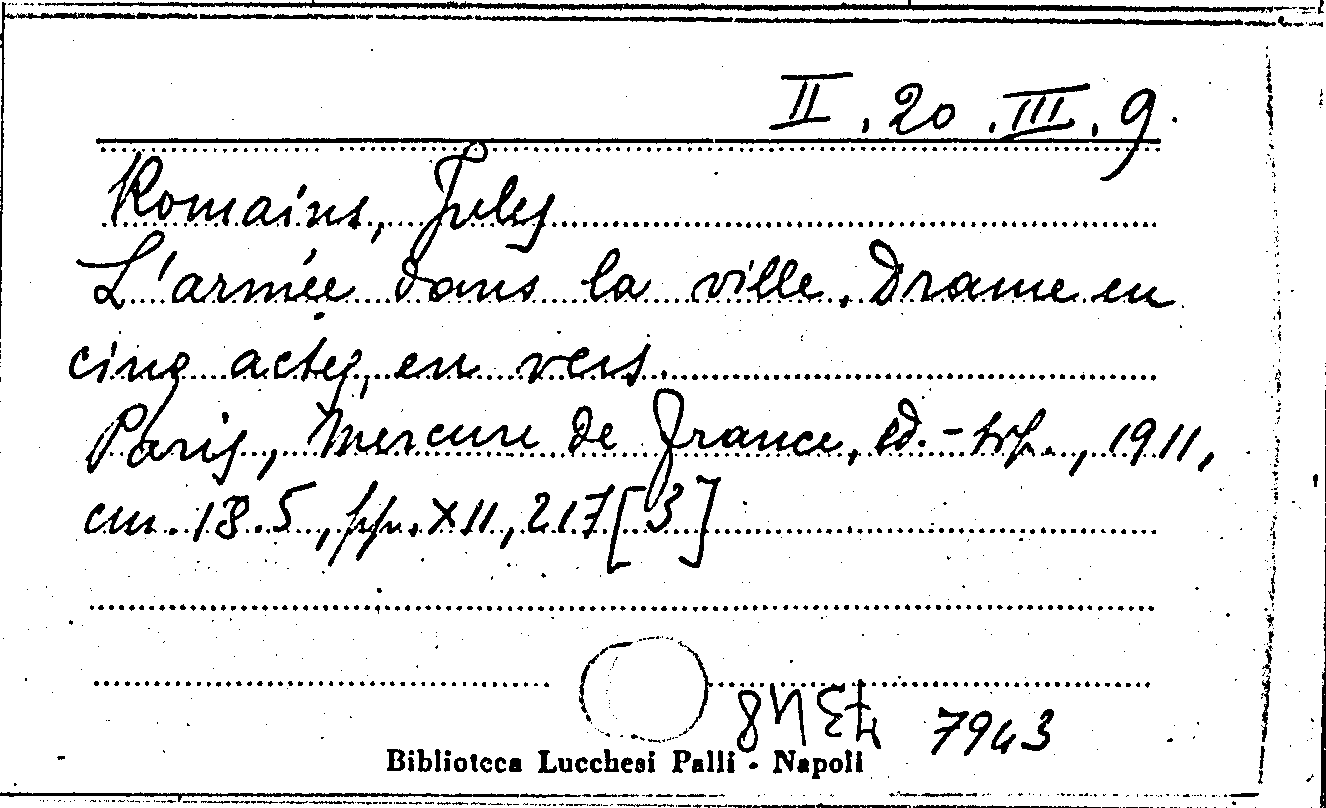 II. 20. III. 9.
Romains, Jules
L'armée dans la ville. Drame en
cinq actes, en vers.
Paris, Mercure de France, ed.-tip., 1911,
cm. 18.5, pp. XII, 217 [3]
7943
Biblioteca Lucchesi Palli - Napoli